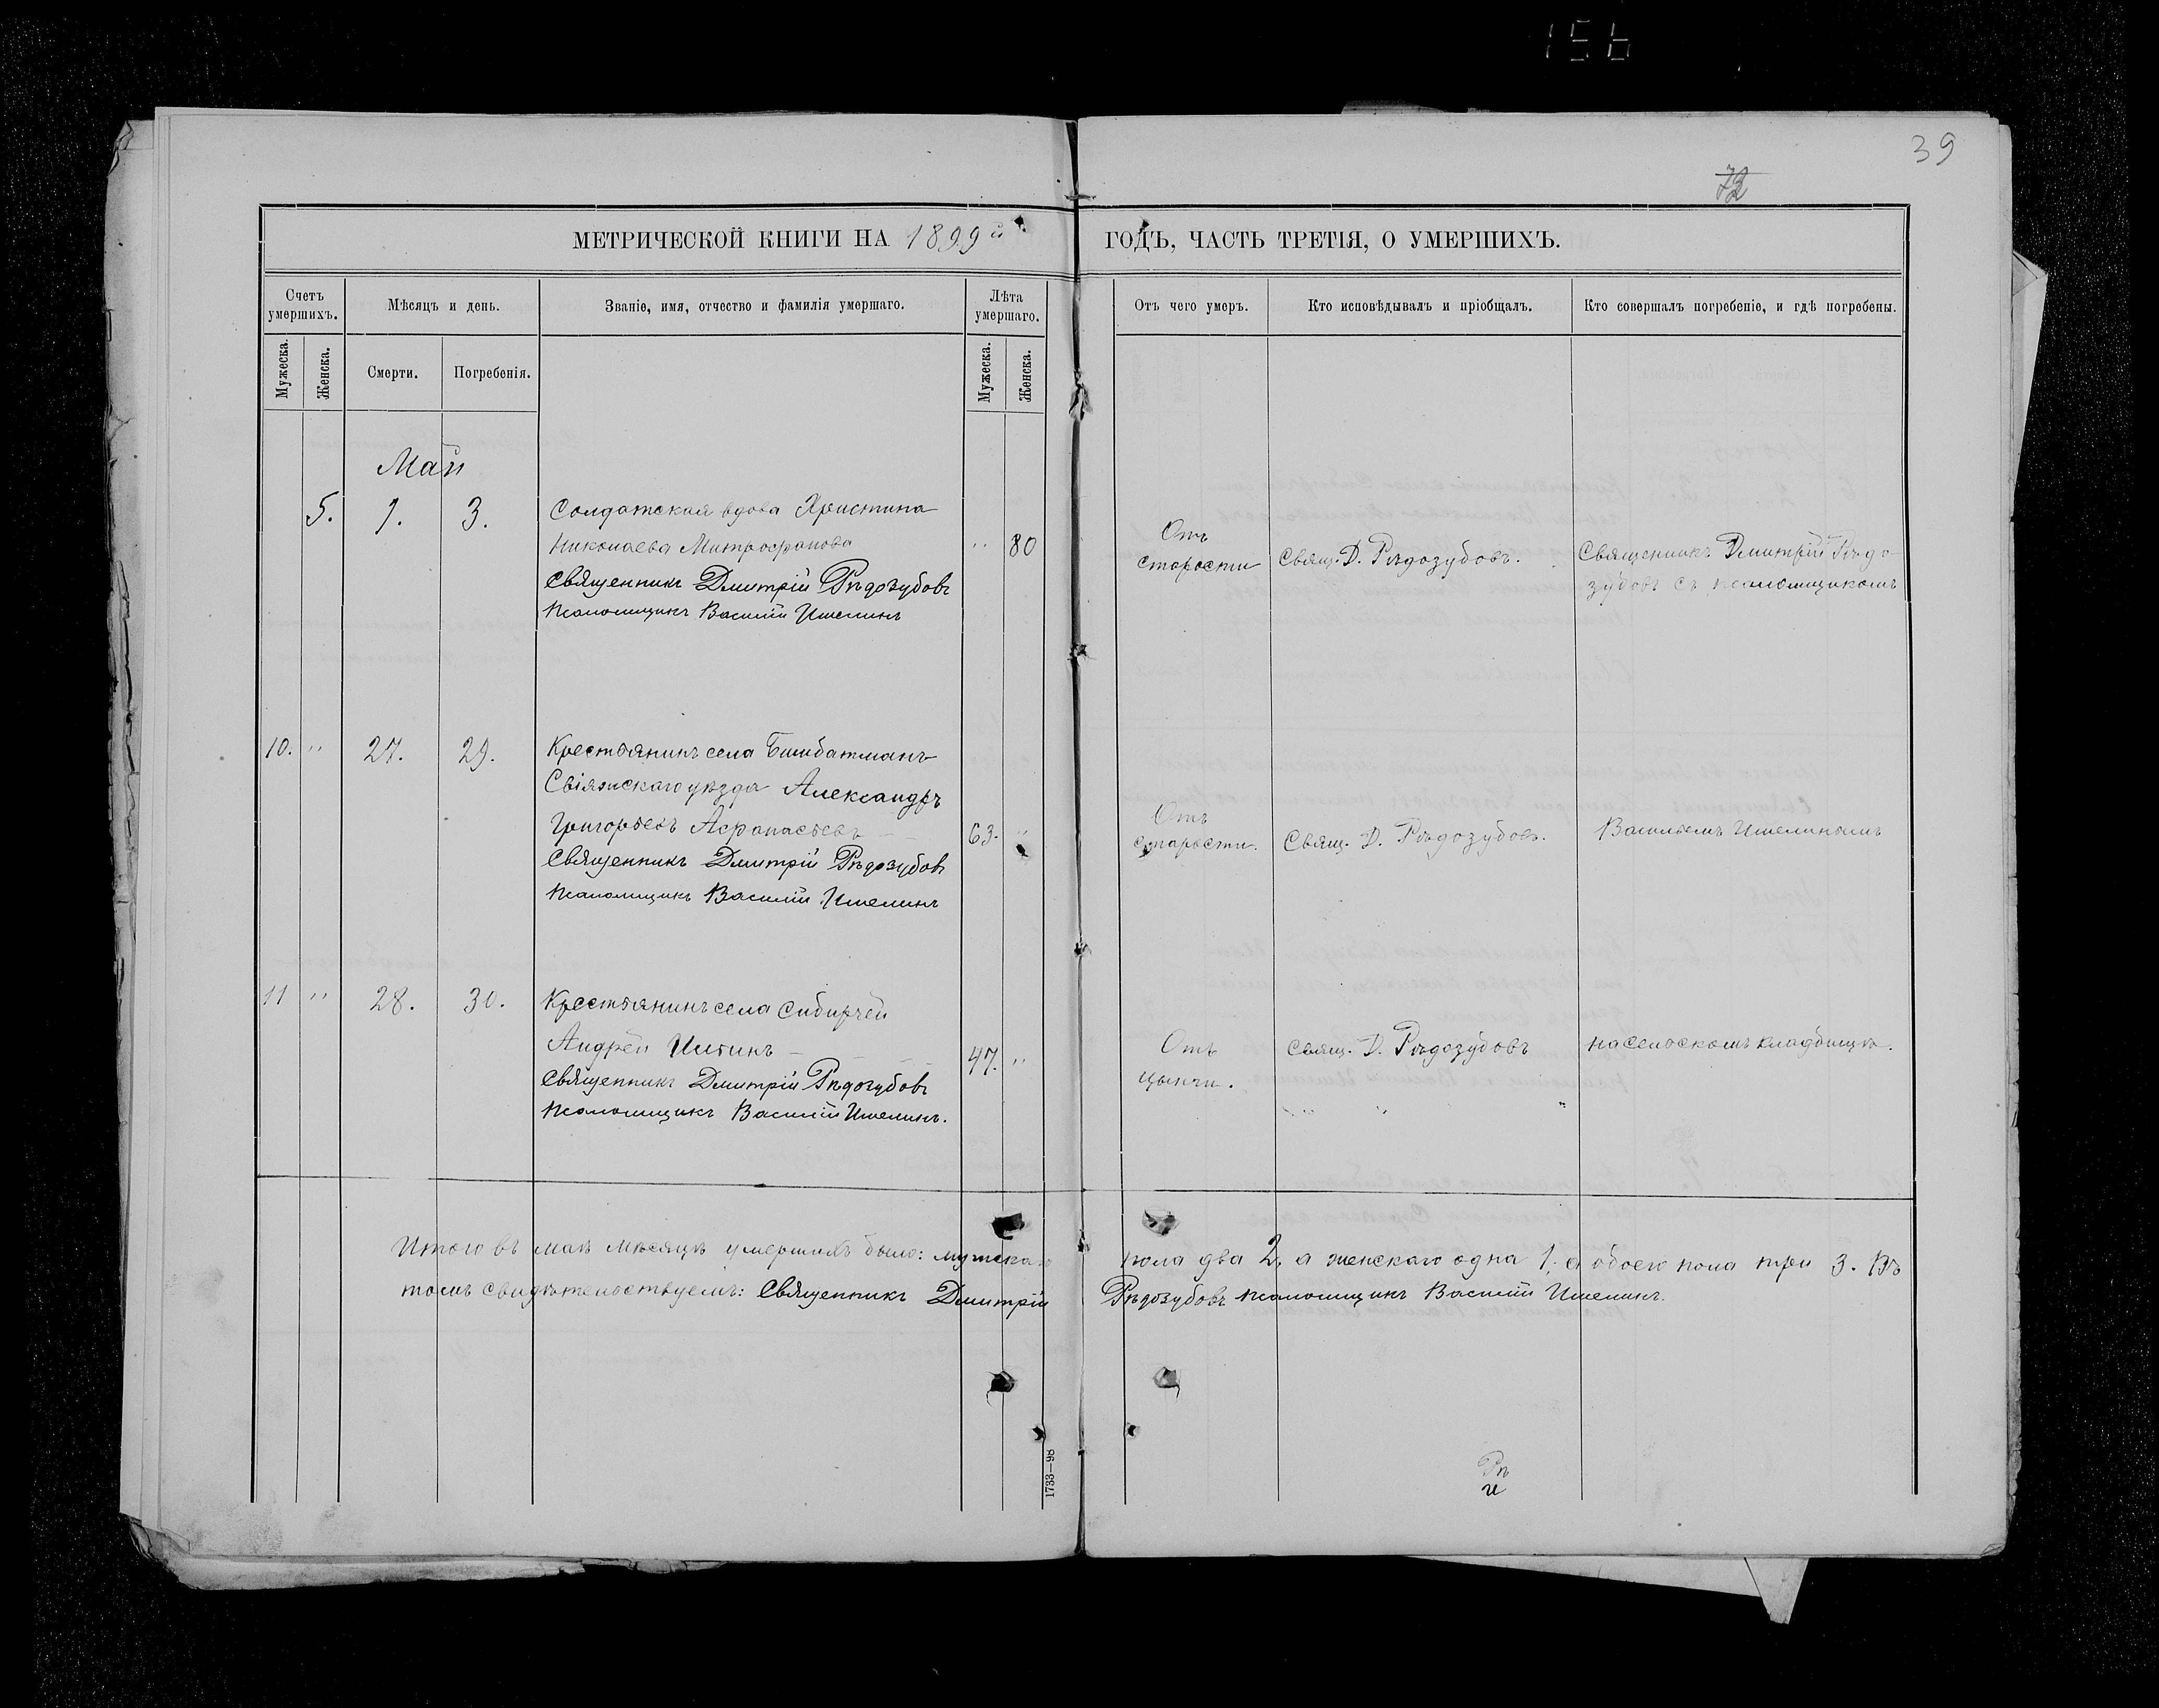 156
39
72
МЕТРИЧЕСКОЙ КНИГИ НА 1899й ГОДЪ, ЧАСТЬ ТРЕТІЯ, О УМЕРШИХЪ.
Счетъ умершихъ.
Мѣсяцъ и день.
Званіе, имя, отчество и фамилія умершаго.
Лѣта умершаго.
Отъ чего умеръ.
Кто исповѣдывалъ и пріобщалъ.
Кто совершалъ погребеніе, и гдѣ погребены.
Мужеска.
Женска.
Смерти.
Погребенія.
Мужеска.
Женска.
Май
5. 1. 3.
Солдатская вдова Христина
Николаева Митрофанова
Священникъ Дмитрій Рѣдозубовъ
Псаломщикъ Василій Ишелинъ
" 80
Отъ
старости
Свящ. Д. Рѣдозубовъ.
Священникъ Дмитрій Рѣдо-
зубовъ съ псаломщикомъ
10. " 27. 29.
Крестьянинъ села Бишбатманъ
Свіяжскаго уѣзда Александръ
Григорьевъ Афанасьевъ
Священникъ Дмитрій Рѣдозубовъ
Псаломщикъ Василій Ишелинъ
63. "
Отъ
старости.
Свящ. Д. Рѣдозубовъ.
Васильемъ Ишелинымъ
11 " 28. 30.
Крестьянинъ села Сибирчей
Андрей
Священникъ Дмитрій Рѣдозубовъ
Псаломщикъ Василій Ишелинъ.
47. "
Отъ
цынги.
Свящ. Д. Рѣдозубовъ
на сельскомъ кладбищѣ.
Итого въ маѣ мѣсяцѣ умершихъ было: мужска пола два 2, а женскаго одна 1; а обоего пола три 3. Въ
томъ свидѣтельствуемъ: Священникъ Дмитрій Рѣдозубовъ Псаломщикъ Василій Ишелинъ.
1733—98